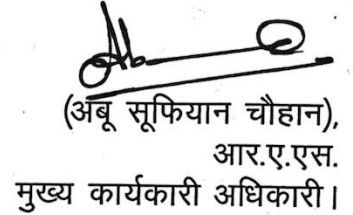 (अबू सूफियान चौहान),
आर.ए.एस.
मुख्य कार्यकारी अधिकारी।